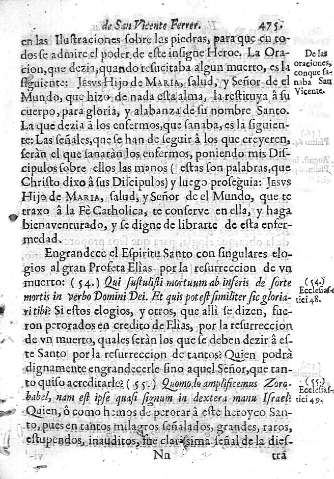 de San Vicente Ferrer. 475.
en las Ilustraciones sobre las piedras, para que en to-
dos se admire el poder de este insigne Heroe. La Ora-
cion, que dezia, quando resucitaba algun muerto, es la
siguiente: JESVS Hijo de MARIA, salud, y Señor de el
Mundo, que hizo de nada esta alma, la restituya à su
cuerpo, para gloria, y alabanza de su nombre Santo.
La que dezia à los enfermos, que sanaba, es la siguien-
te: Las señales, que se han de seguir à los que creyeren,
seràn el que sanaràn los enfermos, poniendo mis Dis-
cipulos sobre ellos las manos (estas son palabras, que
Christo dixo à sus Discipulos) y luego proseguia: JESVS
Hijo de MARIA, salud, y Señor de el Mundo, que te
traxo à la Fè Catholica, te conserve en ella, y haga
bienaventurado, y se digne de librarte de esta enfer-
medad.
Engrandece el Espiritu Santo con singulares elo-
gios al gran Profeta Elias por la resurreccion de vn
muerto: (54.) Qui sustulisti mortuum ab inferis de sorte
mortis in verbo Domini Dei. Et quis potest similiter sic gloria-
ri tibi? Si estos elogios, y otros, que alli se dizen, fue-
ron perorados en credito de Elias, por la resurreccion
de vn muerto, quales seràn los que se deben dezir à es-
te Santo por la resurreccion de tantos? Quien podrà
dignamente engrandecerle sino aquel Señor, que tan-
to quiso acreditarle? (55.) Quomodo amplificemus Zoro-
babel, nam est ipse quasi signum in dextera manu Israel?
Quien, ò como hemos de perorar à este heroyco San-
to, pues en tantos milagros señalados, grandes, raros,
estupendos, inauditos, fue clarissima señal de la dies-
Nn tra
De las
oraciones,
con que sa-
naba San
Vicente.
(54.)
Ecclesias-
tici 48.
(55.)
Ecclesias-
tici 49.